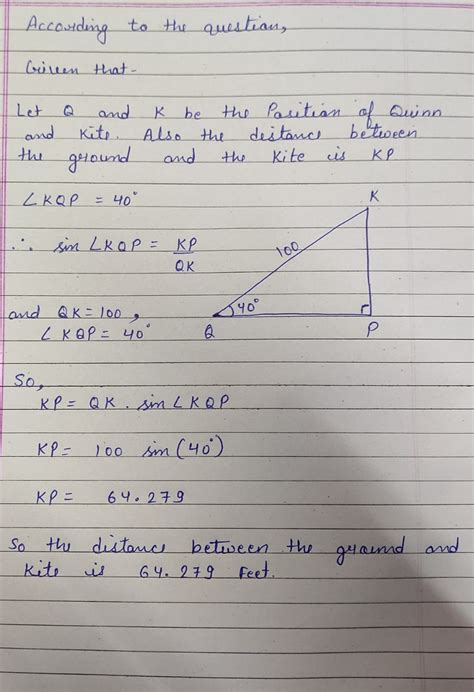 According to the question,
Given that-
Let Q and K be the Position of Quinn
and Kite. Also the distance between
the ground and the Kite is KP
∠KQP = 40°
K
∴ sin ∠KQP = KP/QK
100
and QK = 100,
∠KQP = 40°
40°
Q
P
So,
KP = QK . sin ∠KQP
KP = 100 sin (40°)
KP = 64.279
So the distance between the ground and
Kite is 64.279 Feet.